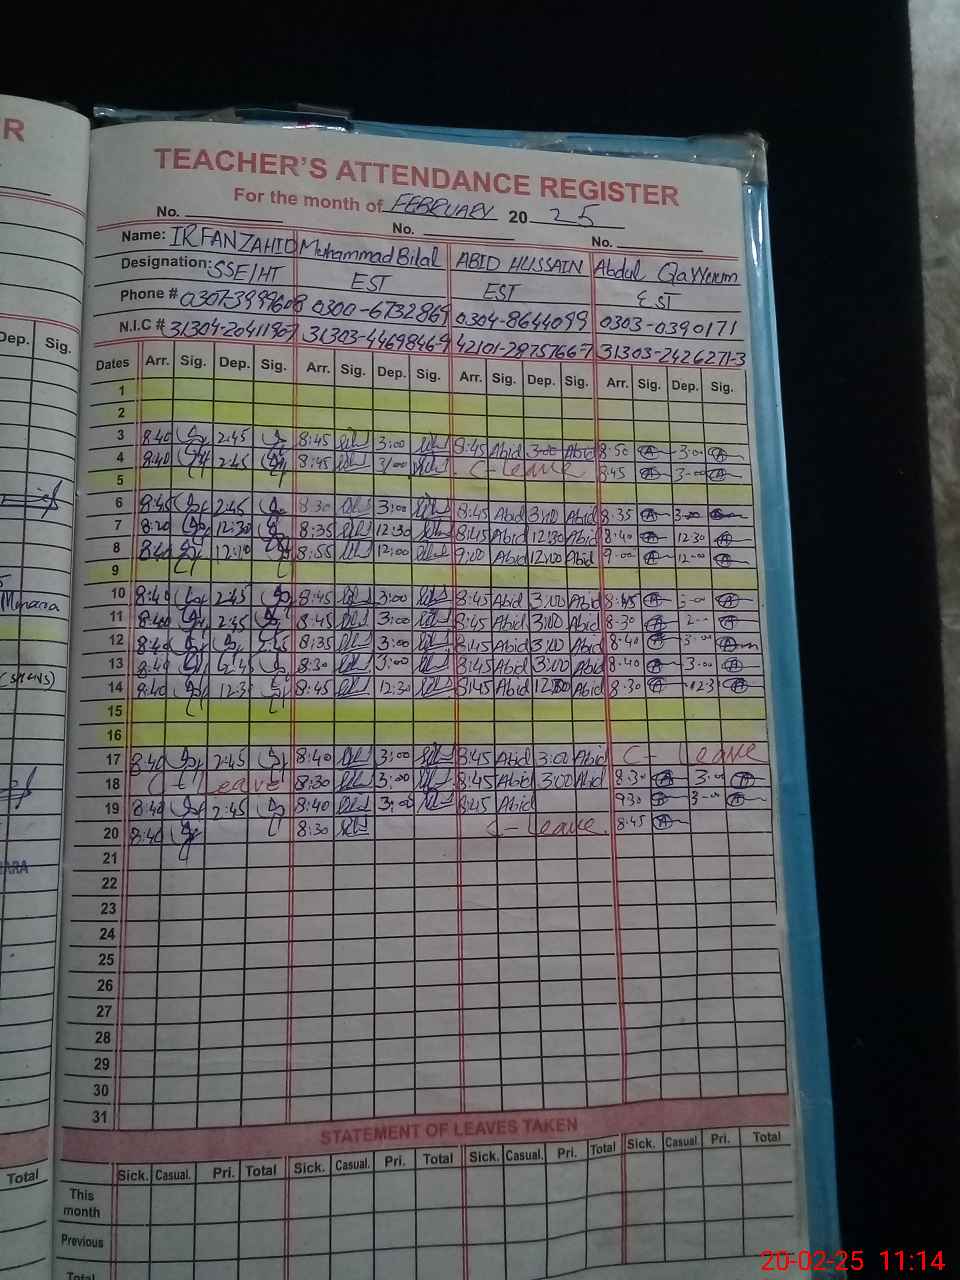 R
TEACHER'S ATTENDANCE REGISTER
For the month of FEBRUARY 20 25
No. No. No.
Name: IRFAN ZAHID Muhammad Bilal ABID HUSSAIN Abdul Qayyum
Designation: SSE/HT EST EST EST
Phone # 0307-3999608 0300-6732869 0304-8644099 0303-0390171
N.I.C # 31304-2041196 31303-4469846-9 42101-2875766-7 31303-2426271-3
Dep. Sig.
Dates Arr. Sig. Dep. Sig. Arr. Sig. Dep. Sig. Arr. Sig. Dep. Sig. Arr. Sig. Dep. Sig.
1
2
3 8:40 2:45 8:45 3:00 8:45 Abid 3:00 Abid 8:50 3:00
4 8:40 2:45 8:45 3:00 C-Leave 8:45 3:00
5
6 8:45 2:45 8:30 3:00 8:45 Abid 3:00 Abid 8:35 3:00
7 8:20 12:30 8:35 12:30 8:45 Abid 12:30 Abid 8:40 12:30
8 8:40 12:10 8:55 12:00 9:00 Abid 12:00 Abid 9:00 12:00
9
10 8:40 2:45 8:45 3:00 8:45 Abid 3:00 Abid 8:45
11 8:40 2:45 8:45 3:00 8:45 Abid 3:00 Abid 8:30
12 8:40 2:45 8:35 3:00 8:45 Abid 3:00 Abid 8:40 3:00
13 8:40 2:45 8:30 3:00 8:45 Abid 3:00 Abid 8:40 3:00
14 8:40 12:3 8:45 12:30 8:45 Abid 12:30 Abid 8:30 12:3
15
16
17 8:40 2:45 8:40 3:00 8:45 Abid 3:00 Abid C- Leave
18 C- Leave 8:30 3:00 8:45 Abid 3:00 Abid 8:30 3:00
19 8:40 2:45 8:40 3:00 8:45 Abid 9:30 3:00
20 8:40 8:30 C-Leave 8:45
21
22
23
24
25
26
27
28
29
30
31
STATEMENT OF LEAVES TAKEN
Total
Sick. Casual. Pri. Total Sick. Casual. Pri. Total Sick. Casual. Pri. Total Sick. Casual. Pri. Total
This month
Previous
Total
20-02-25 11:14